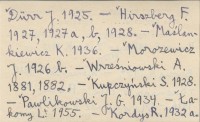 "Dürr J. 1925. — "Hirszberg F.
1927, 1927a, b, 1928. — "Maślan-
kiewicz K. 1936. — "Morozewicz
J. 1926 b. — Wrześniowski A.
1881, 1882, — "Kupczyński S. 1928.
— "Pawlikowski J. G. 1934. — "Ła-
komy L. 1955. — "Kordys R. 1932a.